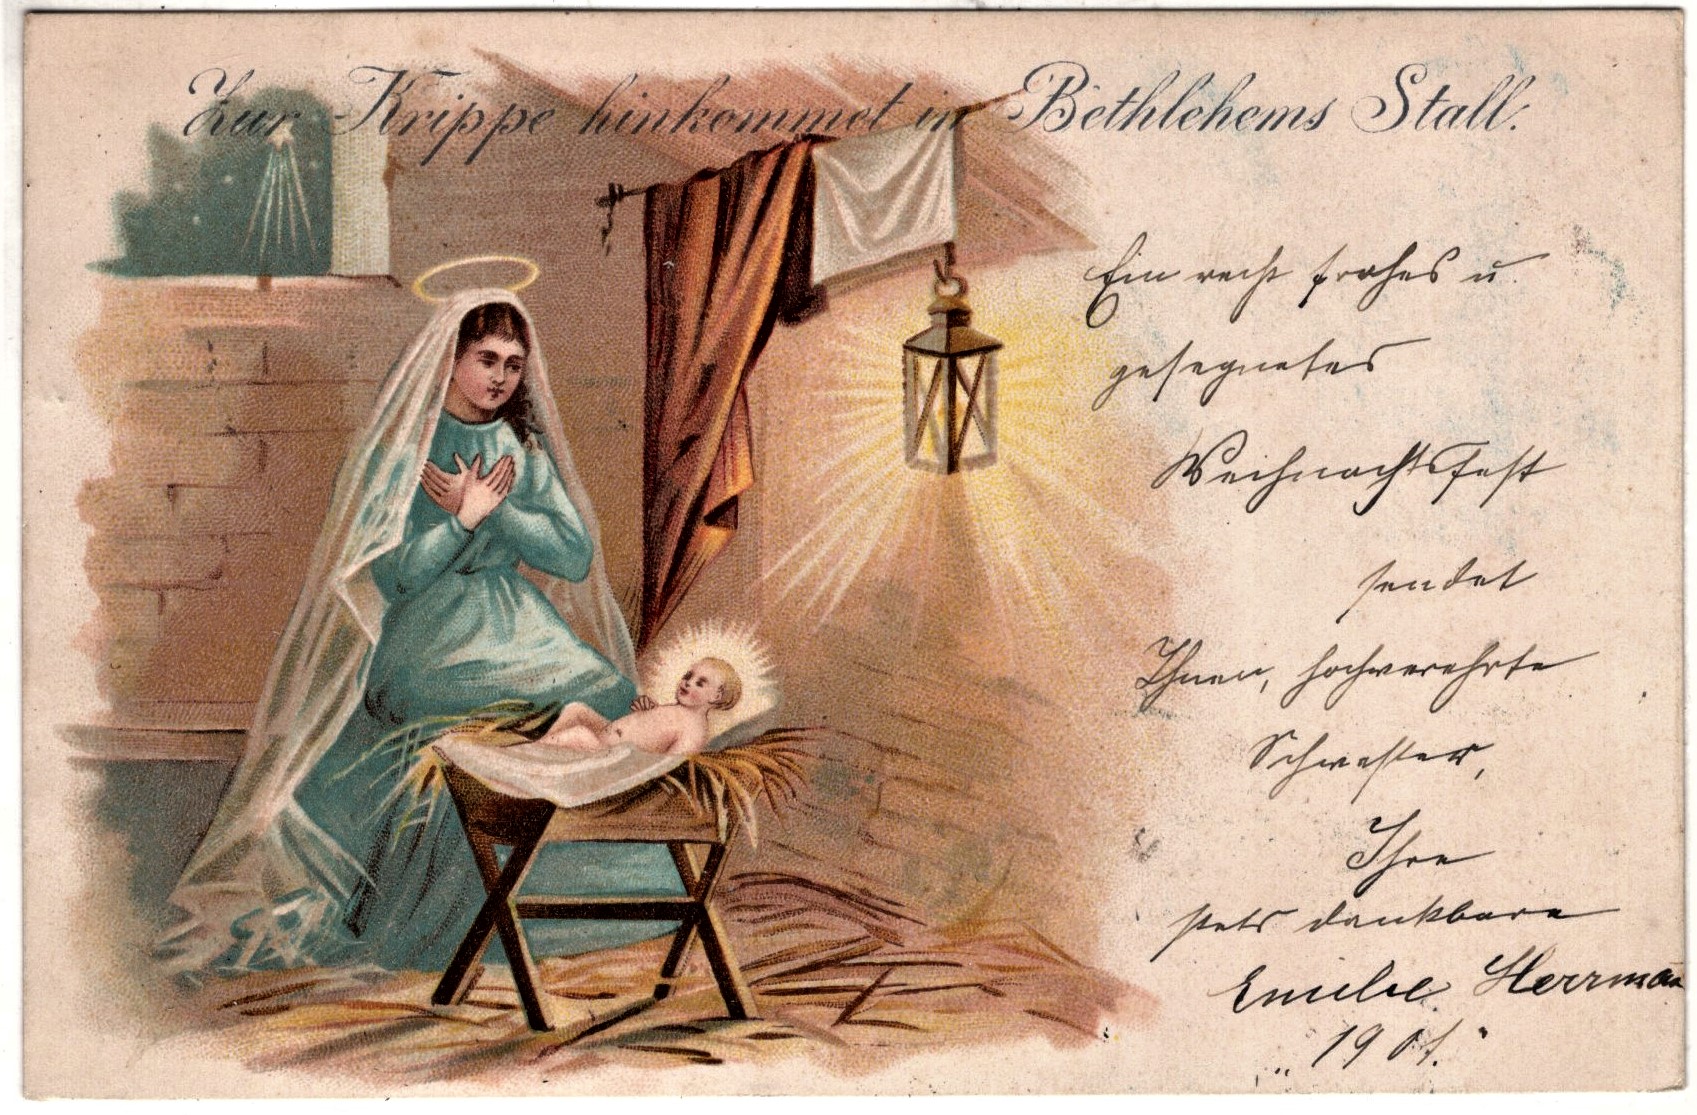 Zur Krippe hinkommet in Bethlehems Stall.
Ein recht frohes u.
gesegnetes
Weihnachtsfest
sendet
Ihnen, hochverehrte
Schwester,
Ihre
stets dankbare
Emilie Herrman
1901.